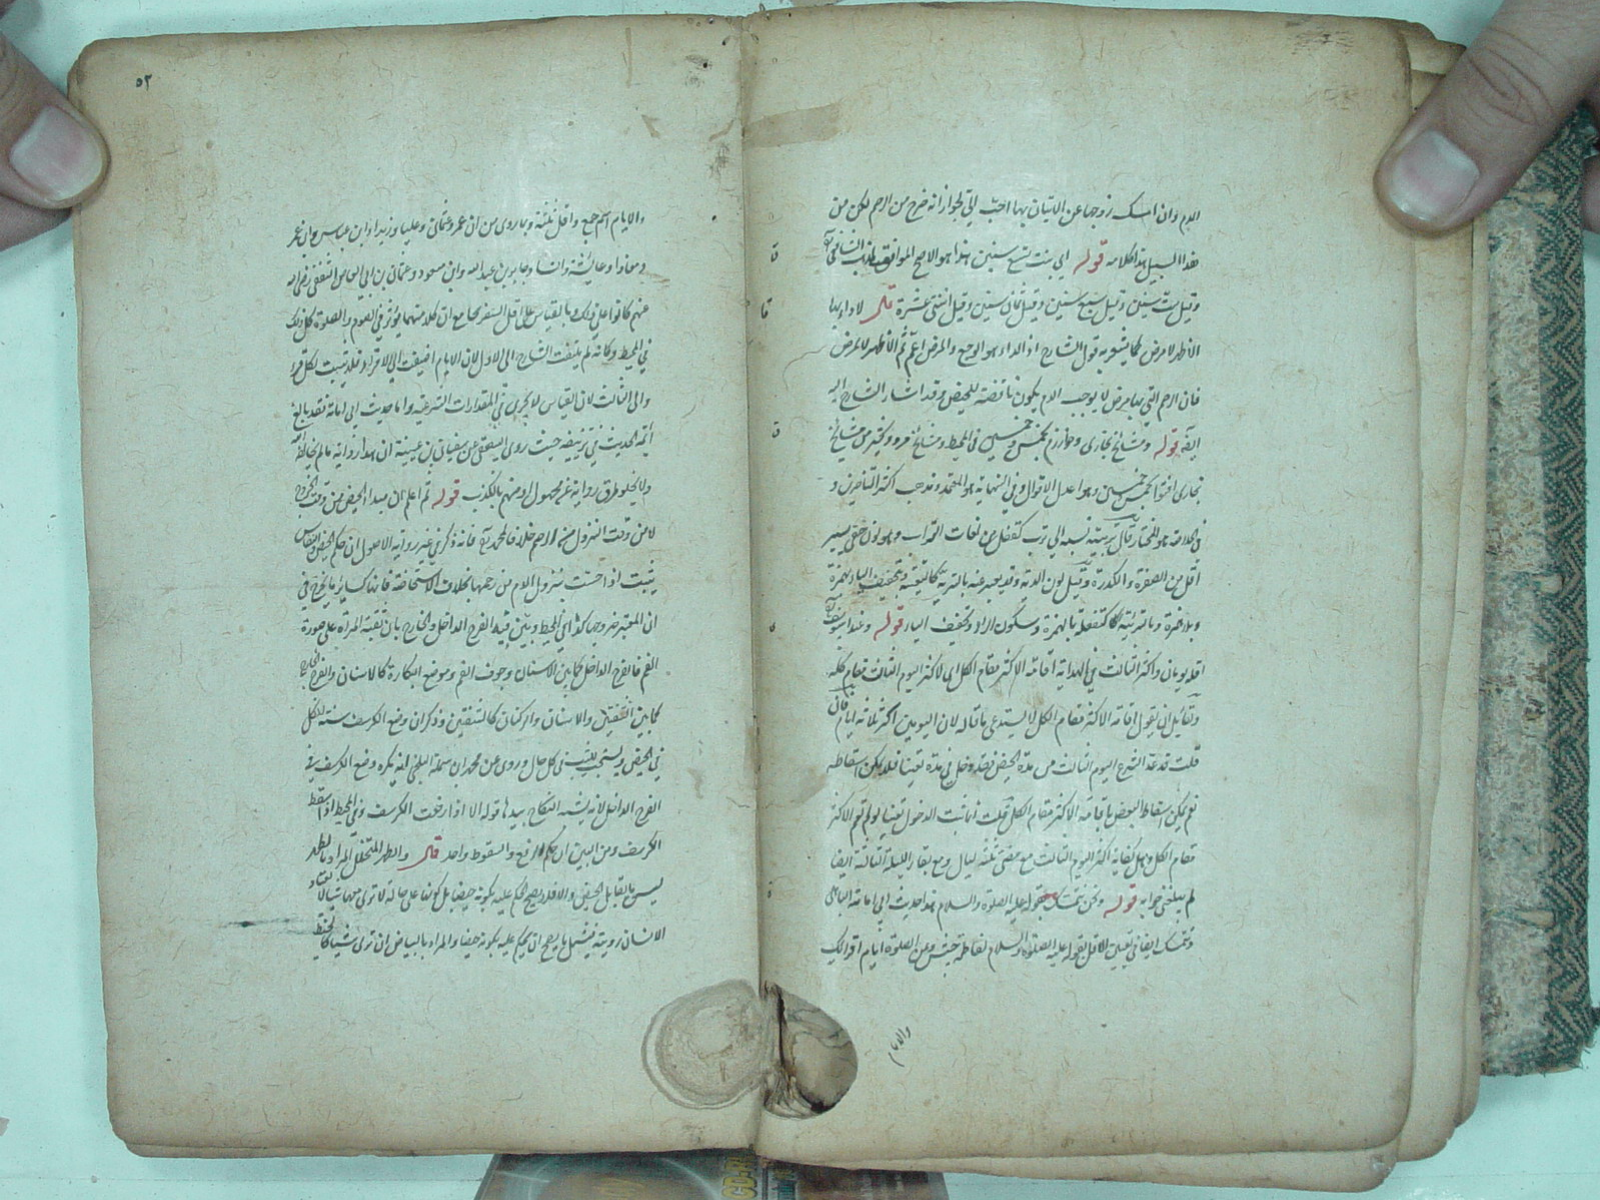 الدم وان امسك زوجها عن الاتيان بها احبّ الىّ لجواز انه خرج من الرحم لكن من
هذا السبيل هذا كلامه قوله اى بنت تسع سنين هذا هو الاصح الموافق لمذهب الشافعى
وقيل ست سنين وقيل سبع سنين وقيل ثمان سنين وقيل اثنتى عشرة قال لا داء بها
الاظهر لا مرض كما يشعر به قول الشارح اذ الداء هو الوجع والمرض اعم ثم الاظهر لا لمرض
فان الرحم التى بها مرض لا يوجب الدم يكون ناقضة للحيض وقد اشار الشارح اليه
ايضا قوله ومشايخ بخارى وخوارزم بخمس وخمسين فى المحيط ومشايخ مرو وكثير من مشايخ
بخارى افتوا بخمس وخمسين وهو اعدل الاقوال وفى النهاية هو المعتمد وذهب اكثر المتأخرين و
فى الخلاصة هو المختار قال تربية نسبة الى ترب كقفل من لغات التراب وهو لون خفى يسير
اقل من الصفرة والكدرة وقيل لون الدية وقد يعبر عنه بالترية كالتيقنة وتخفيف الياء بهمزة
وبلا همزة وبالتربية كالتفعلة بالهمزة وسكون الراء وتخفيف الياء قوله وعند ابى يوسف
اقله يومان واكثر الثالث فى الهداية اقامة الاكثر مقام الكل اى لاكثر اليوم الثالث مقام كله
ولقائل ان يقول اقامة الاكثر مقام الكل لا يستدعى ما قاله لان اليومين اكثر ثلاثة ايام فان
قلت قد عد الشرع اليوم الثالث من مدة الحيض فقد دخل فى مدة تعينا فلا يمكن اسقاطه
نعم يمكن اسقاط البعض باقامة الاكثر مقام الكل قلت انما ثبت الدخول تعينا لو لم تقم الاكثر
مقام الكل وهل كفاية اكثر اليوم الثالث مع مضى ثلثة ليال ومع بقاء الليلة الثالثة ايضا
لم يبلغنى جوابه قوله ونحن نتمسك بقوله عليه الصلوة والسلام هذا حديث ابى امامة الباهلى
ونتمسك ايضا فى تعيين الاقل بقوله عليه الصلوة والسلام لفاطمة بنت حبيش دعى الصلوة ايام اقرائك
والايام
٥٢
والايام اسم جمع واقله ثلثة وبما روى من ان عمر وعثمان وعليا وزيدا وابن عباس وابن عمر
ومعاذا وعائشة وانسا وجابر بن عبد الله وابن مسعود وعثمان بن ابى العاص الثقفى رضى الله
عنهم كانوا على ذلك بالقياس على اقل السفر بجامع ان كلا منهما يؤثر فى الصوم والصلوة كل ذلك
فى المحيط وكانه لم يلتفت الشارح الى الاول لان الايام اضيفت الى الاقراء فلا يثبت لكل قرء
والى الثالث لان القياس لا يجرى فى المقدارات الشرعية واما حديث ابى امامة فقد بالغ
ائمة الحديث فى تزييفه حيث روى البيهقى عن سفيان بن عيينة ان هذا رواية ما لم يخالفه
ولا يخلو طرق رواية عن مجهول او متهم بالكذب قوله ثم اعلم ان مبدأ الحيض من وقت الخروج
لا من وقت النزول من الرحم خلافا لمحمد فانه ذكر فى غير رواية الاصول ان حكم الحيض والنفاس
يثبت اذا احست بنزول الدم من رحمها بخلاف الاستحاضة فانها كسائر ما يخرج فى
ان المعتبر خروجها كذا فى المحيط وبين فيه الفرج الداخل والخارج بان قعبة المرأة على صورة
الفم فالفرج الداخل كما بين الاسنان وجوف الفم وموضع البكارة كالاسنان والفرج الخارج
كما بين الشفتين والاسنان والركنان كالشفتين وذكر ان وضع الكرسف سنة للكل
فى الحيض ويستحب للثيب فى كل حال وروى عن محمد ابن سلمة البلخى انه يكره وضع الكرسف فى
الفرج الداخل لانه يشبه النكاح بيدها قوله الا اذا رفعت الكرسف وفى المحيط اذا سقط
الكرسف ومن البين ان حكم الرفع والسقوط واحد قال والطهر المتخلل المراد بالطهر
ليس ما يقابل الحيض والا فلا يصح الحكم عليه بكونه حيضا بل كونها على حالة لا ترى منها شيئا لا
الانسان رؤيته فيشمل ما يصح ان يحكم عليه بكونه حيضا والمراد بالبياض ان ترى شيئا كالخيط